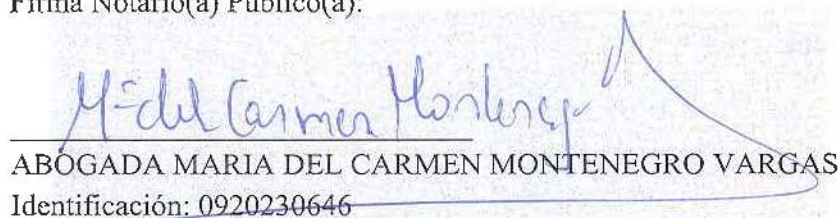 Firma Notario(a) Público(a):
Mª del Carmen Montenegro
ABOGADA MARIA DEL CARMEN MONTENEGRO VARGAS
Identificación: 0920230646